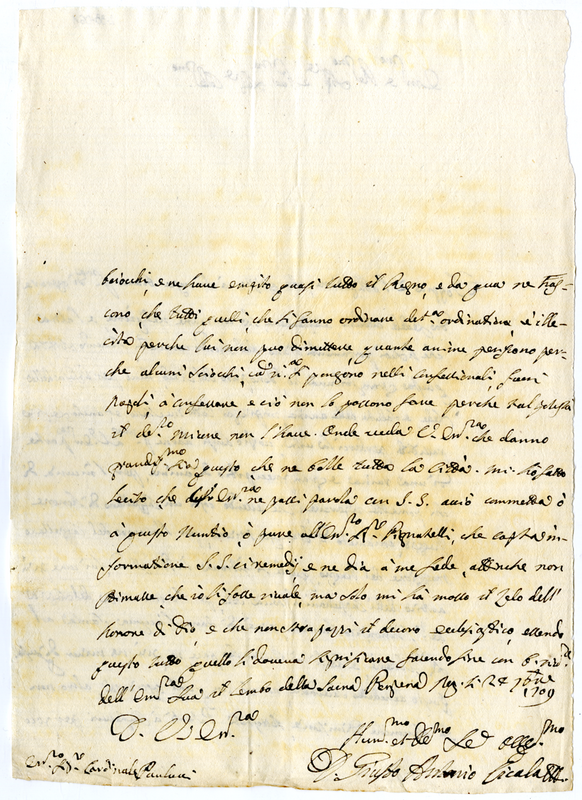 baiocchi, e ne have empito quasi tutto il Regno, e da qua ne nas-
cono, che tutti quelli, che si fanno ordinare det.ª ordinatione, è ille-
cita perche lui non può dimettere, quante anime periscono per-
che alcuni sciocchi, si pongono nelli confessionali,
à confessare, e ciò non lo possono fare perche tal potestà
il de.to non l'have. Onde veda V. Em.za che danno
questo che ne bolle tutta la Città. Mi hò fatto
lecito, che V. Em.za ne passi parola con S. S. acciò commetta ò
à questo Nuntio, ò pure all'Em.mo Sr. Pignatelli, che capta in-
formatione S. S. ci remedij e ne dia a me fede, attesoche non
stimasse che io li fosse rivale, ma solo mi hà mosso il zelo dell'
honore di Dio, e che non strapazzi il decoro ecclesiastico, essendo
questo tutto quello li doveva significare facendo fine con
dell'Em.za Sua il lembo della Sacra Nap.li 24 7bre 1709
D. V. Em.za
Hum.mo et Dev.mo Se.e obb.mo
D. Giusto Antonio Cicala
Em.mo Sr. Cardinale Paulucci